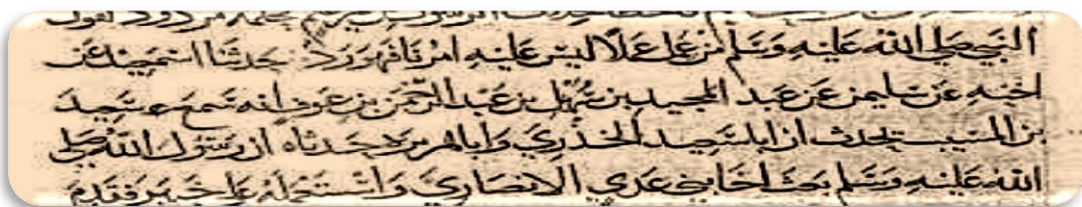 فحكمه مردود لقول
النبي صلى الله عليه وسلم من عمل عملا ليس عليه امرنا فهو رد حدثنا اسمعيل عن
اخيه عن سليمن عن عبد المجيد بن سهيل بن عبد الرحمن بن عوف انه سمع سعيد
بن المسيب يحدث ان ابا سعيد الخدري وابا هريرة حدثاه ان رسول الله صلى
الله عليه وسلم بعث اخا بني عدي الانصاري واستعمله على خيبر فقدم